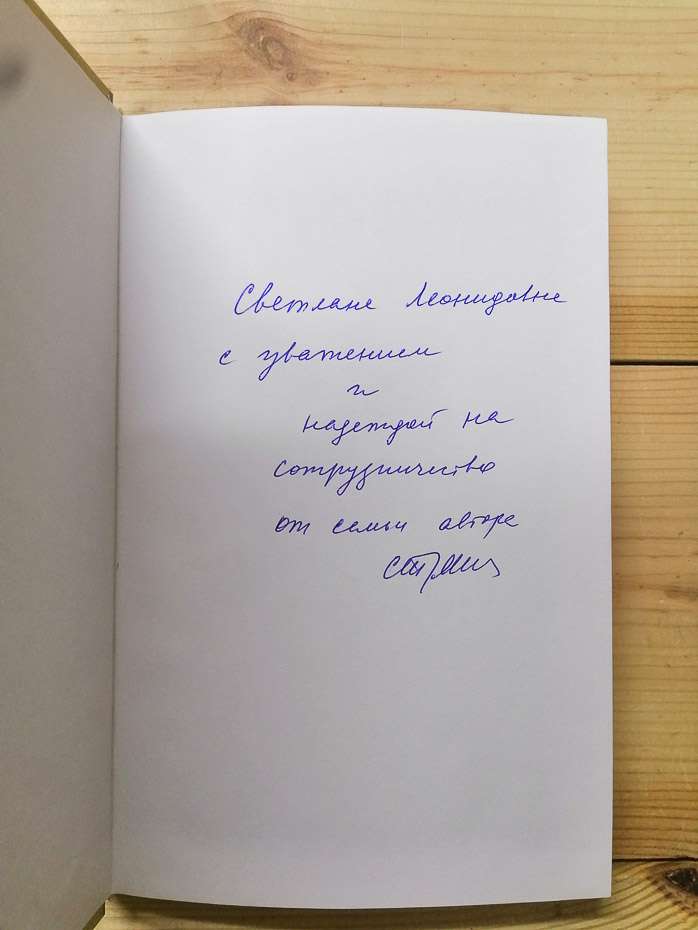 Светлане Леонидовне
с уважением
и
надеждой на
сотрудничество
от семьи автора